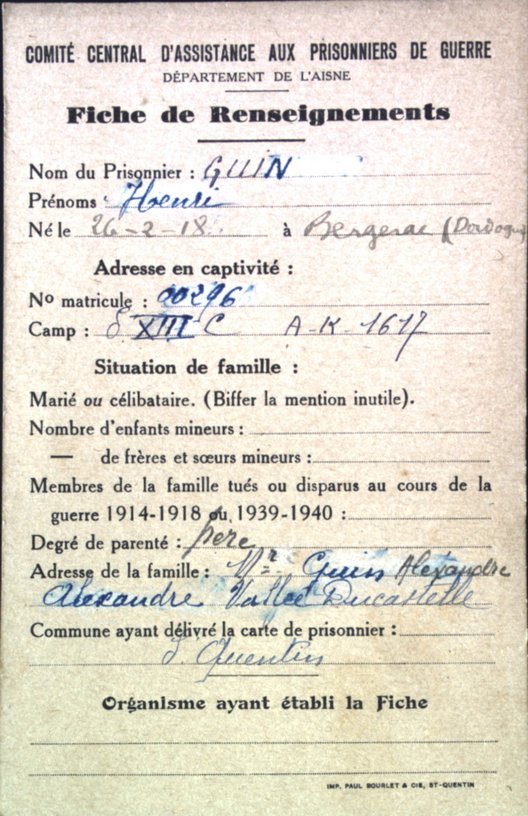 COMITÉ CENTRAL D'ASSISTANCE AUX PRISONNIERS DE GUERRE
DÉPARTEMENT DE L'AISNE
Fiche de Renseignements
Nom du Prisonnier : GUIN
Prénoms Henri
Né le 26-2-18 à Bergerac (Dordogne
Adresse en captivité :
No matricule : 00296
Camp : S. XIII C A-K-1617
Situation de famille :
Marié ou célibataire. (Biffer la mention inutile).
Nombre d'enfants mineurs :
— de frères et sœurs mineurs :
Membres de la famille tués ou disparus au cours de la
guerre 1914-1918 ou 1939-1940 :
Degré de parenté : père
Adresse de la famille : Mr Guin Alexandre
Alexandre Vallée Ducastelle
Commune ayant délivré la carte de prisonnier :
S. Quentin
Organisme ayant établi la Fiche
IMP. PAUL BOURLET & CIE, ST-QUENTIN